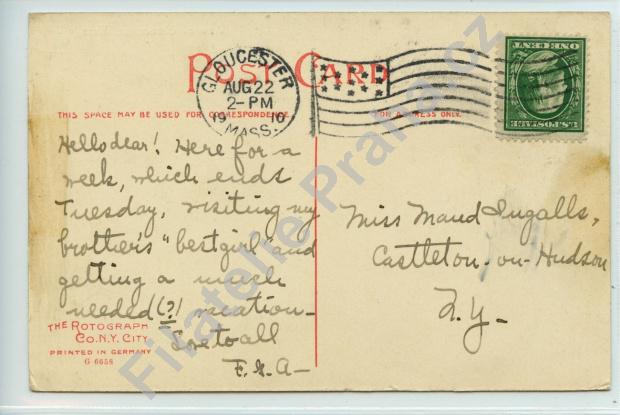 POST CARD
GLOUCESTER
AUG 22
2-PM
1910
MASS.
ONE CENT
U.S. POSTAGE
THIS SPACE MAY BE USED FOR CORRESPONDENCE.
FOR ADDRESS ONLY.
Hello dear! Here for a
week, which ends
Tuesday, visiting my
brother's "best girl" and
getting a much
needed (?) vacation-
Love to all
F. G. A-
Miss Maud Ingalls,
Castleton-on-Hudson
N.Y-
THE ROTOGRAPH
CO. N.Y. CITY
PRINTED IN GERMANY
G 6658
Filatelie Praha.cz